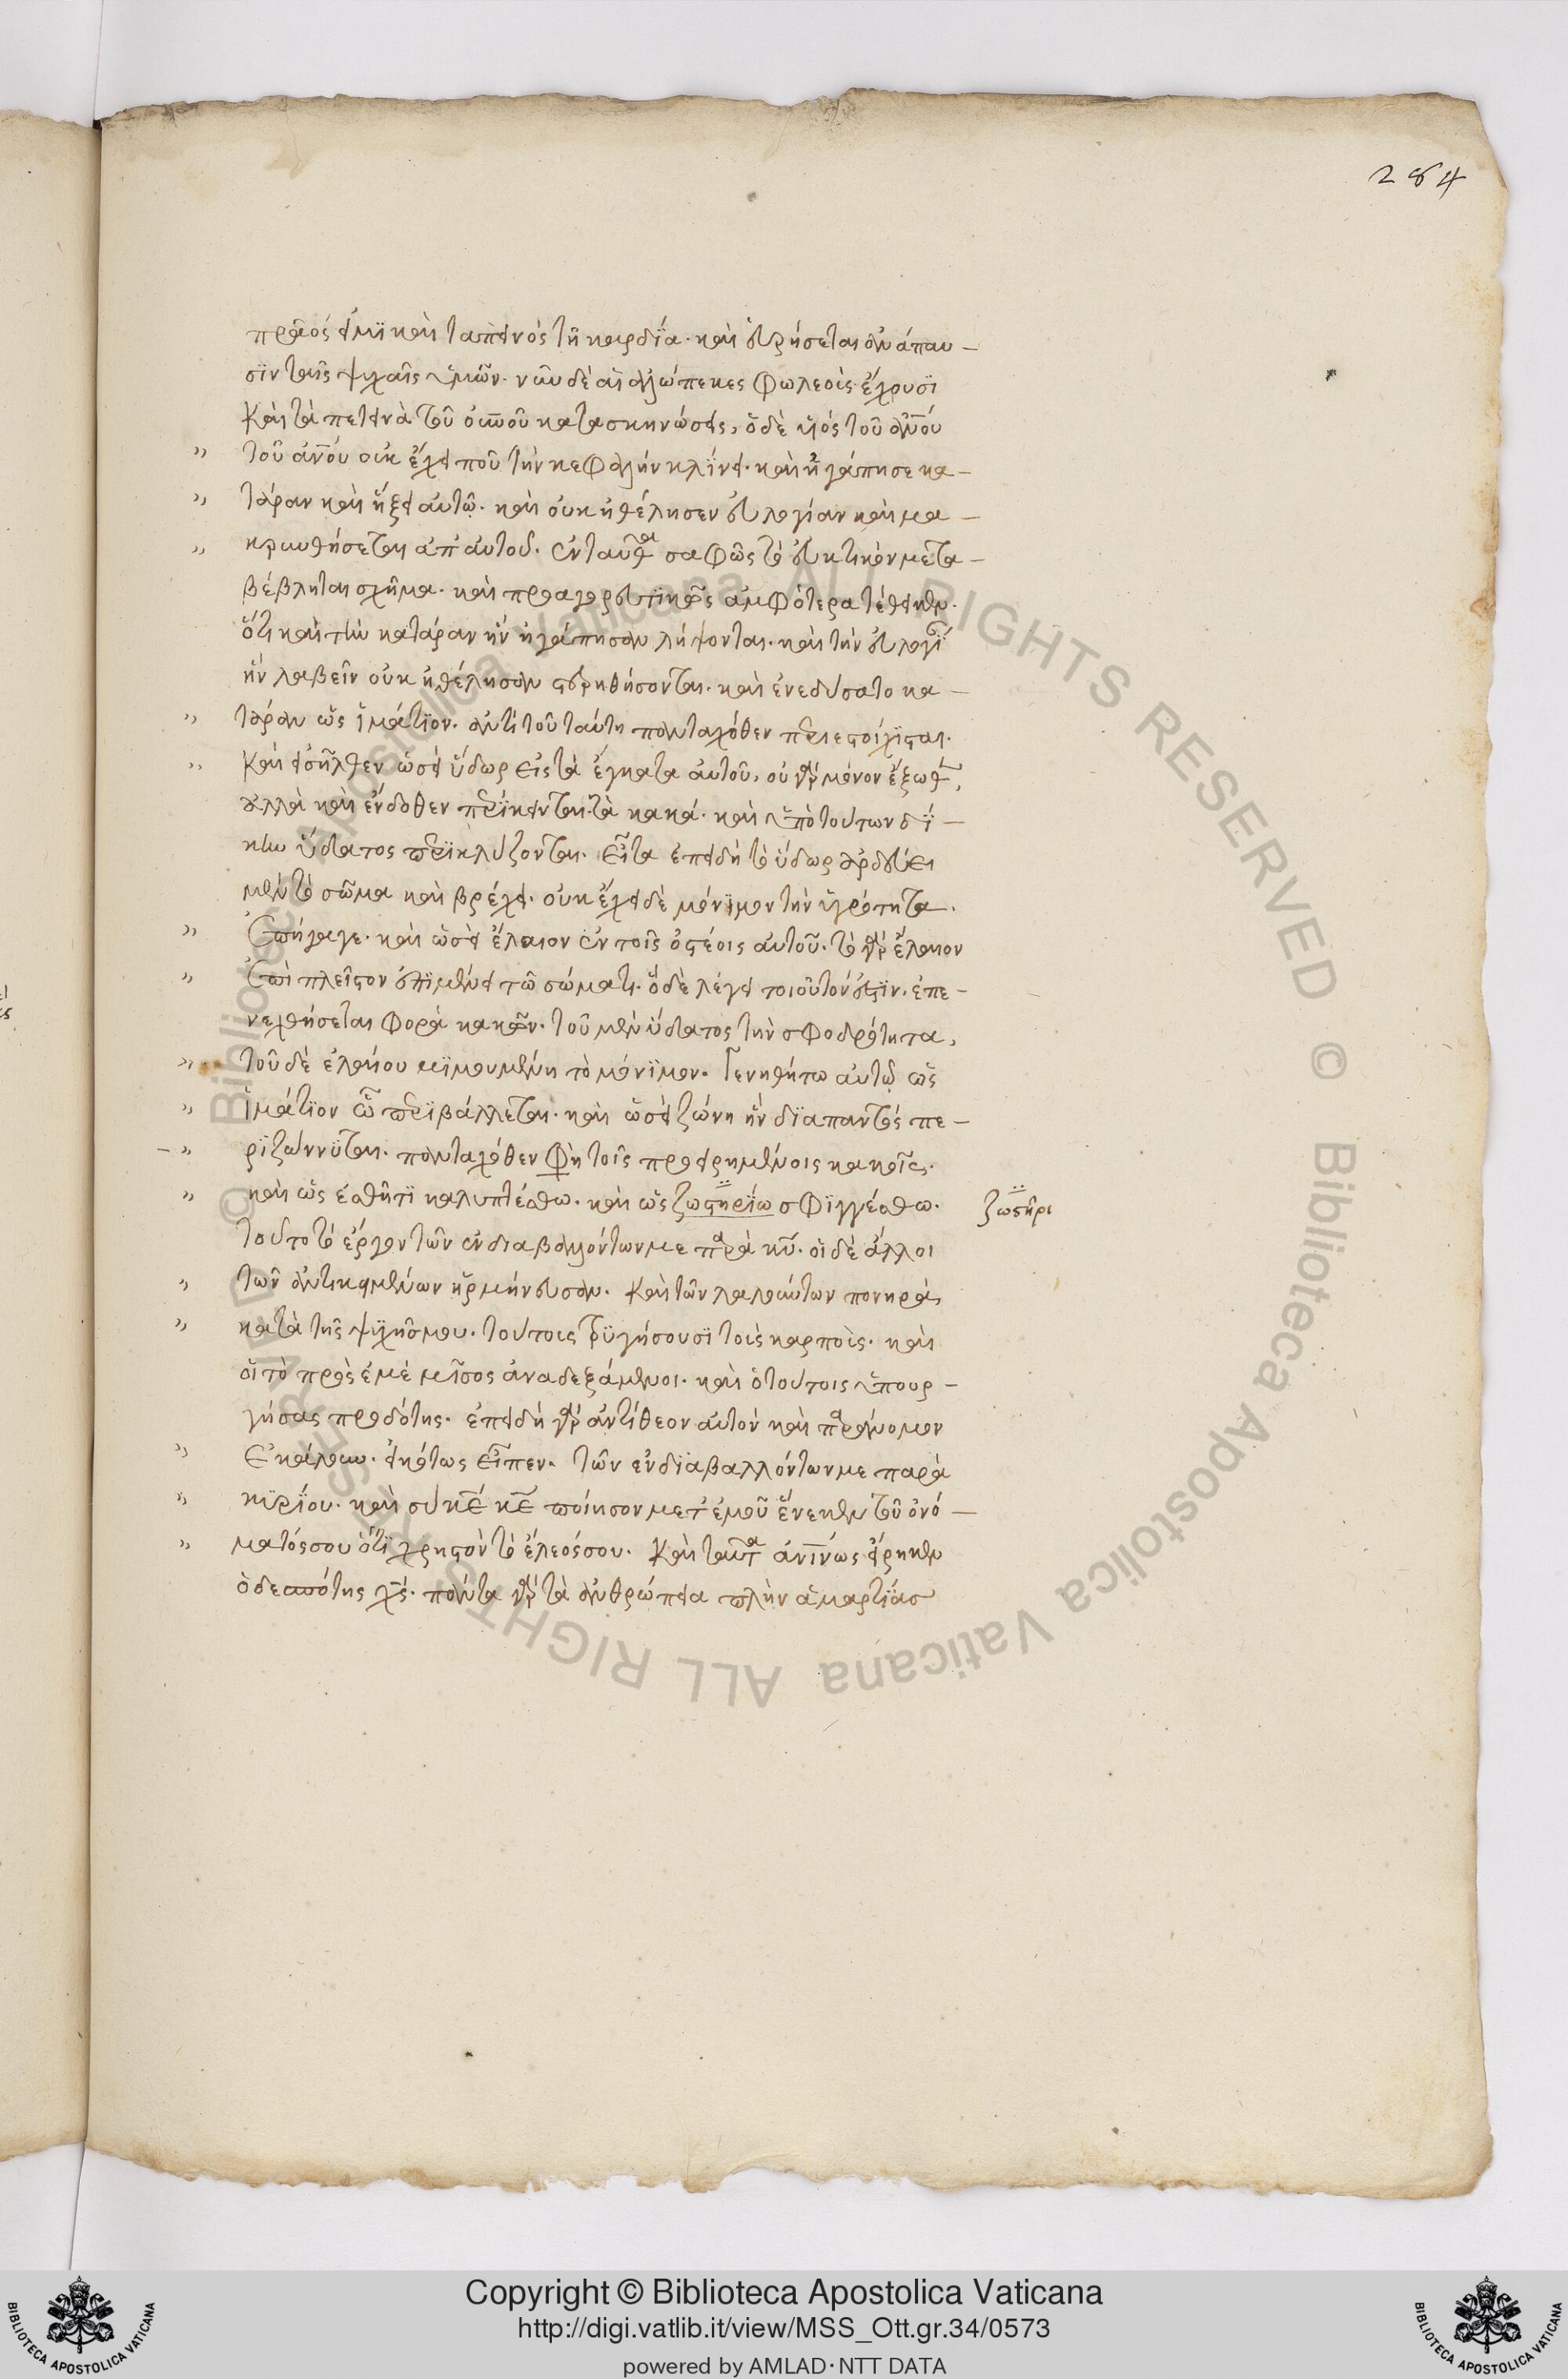 284
πρᾶός εἰμϊ καὶ ταπεινὸς τῆ καρδΐα. καὶ εὑρήσεται ἀνάπαυ –
σϊν ταῖς ψυχαῖς ὑμῶν. νῦν δὲ αἱ ἀλώπεκες φωλεοὺς ἔχουσϊ
Καὶ τὰ πετεινὰ τοῦ οὐνοῦ κατασκηνώσεις, ὁδὲ υἱός τοῦ ἀνού
" τοῦ ἀνού οὐκ ἔχει ποῦ τὴν κεφαλὴν κλΐνει. καὶ ἠγάπησε κα –
" τάραν καὶ ἥξει αὐτῷ. καὶ οὐκ ἠθέλησεν εὐλογίαν καὶ μα –
" κρυνθήσεται ἀπ' αὐτοῦ. ἐνταῦθα σαφῶς τὸ εὐκτικὸν μετα –
βέβληται σχῆμα. καὶ προαγορευτϊκῶς ἀμφότερα τέθεικεν.
ὅτι καὶ τὴν κατάραν ἣν ἠγάπησαν λήψονται. καὶ τὴν εὐλογΐ
ἣν λαβεῖν οὐκ ἠθέλησαν στερηθήσονται. καὶ ἐνεδύσατο κα –
" τάραν ὡς ἱμάτϊον. ἀντὶ τοῦ ταύτη πανταχόθεν περιεστοίχϊσται.
" Καὶ εἰσῆλθεν ὡσεὶ ὕδωρ εἰς τὰ ἔγκατα αὐτοῦ, οὐ γὰρ μόνον ἔξωθ,
ἀλλὰ καὶ ἔνδοθεν περίκεινται τὰ κακά. καὶ ὑπὸ τούτων δΐ –
κην ὕδατος περϊκλύζονται. εἶτα ἐπειδὴ τὸ ὕδωρ ἀρδεύει
μὲν τὸ σῶμα καὶ βρέχει. οὐκ ἔχει δὲ μόνϊμον τὴν ὑγρότητα.
" Ἐπήγαγε. καὶ ὡσεὶ ἔλαιον ἐν τοῖς ὀστέοις αὐτοῦ. τὸ γὰρ ἔλαιον
" Ἐπὶ πλεῖστον ἐπϊμένει τῶ σώματι. ὃ δὲ λέγει τοιοῦτόν ἐστϊν. ἐπε –
νεχθήσεται φορὰ κακῶν. τοῦ μὲν ὕδατος τὴν σφοδρότητα,
" τοῦ δὲ ἐλαίου μϊμουμένη τὸ μόνϊμον. Γενηθήτω αὐτῷ ὡς
" ἱμάτϊον ὃ περϊβάλλεται. καὶ ὡσεὶ ζώνη ἣν δϊαπαντὸς πε –
– " ρϊζώννϋται. πανταχόθεν φὴ τοῖς προειρημένοις κακοῖς.
" καὶ ὡς ἐσθῆτϊ καλυπτέσθω. καὶ ὡς ζωστηρΐω σφϊγγέσθω. ζωστῆρι
τοῦτο τὸ ἔργον τῶν ἐνδιαβαλλόντων με παρὰ κυ. οἱ δὲ ἄλλοι
" τῶν ἀντικειμένων ἡρμήνευσαν. Καὶ τῶν λαλούντων πονηρὰ,
" κατὰ τῆς ψυχῆς μου. τούτοις τρϋγήσουσϊ τοὺς καρποὺς. καὶ
οἱ τὸ πρὸς ἐμὲ μῖσος ἀναδεξάμενοι. καὶ ὁ τούτοις ὑπουρ –
γήσας προδότης. ἐπειδὴ γὰρ ἀντίθεον αὐτὸν καὶ παράνομον
" Ἐκάλουν. εἰκότως εἶπεν. τῶν ἐνδϊαβαλλόντων με παρὰ
" κϋρΐου. καὶ σὺ κε κε ποίησον μετ' ἐμοῦ ἕνεκεν τοῦ ὀνό –
" ματός σου ὅτϊ χρηστὸν τὸ ἔλεός σου. Καὶ ταῦτα ἀνΐνως εἴρηκεν
ὁ δεσπότης χς. πάντα γὰρ τὰ ἀνθρώπεια πλὴν ἁμαρτΐασ
Copyright © Biblioteca Apostolica Vaticana
http://digi.vatlib.it/view/MSS_Ott.gr.34/0573
powered by AMLAD·NTT DATA
BIBLIOTECA APOSTOLICA VATICANA
BIBLIOTECA APOSTOLICA VATICANA
© Biblioteca Apostolica Vaticana ALL RIGHTS RESERVED © Biblioteca Apostolica Vaticana ALL RIGHTS RESERVED